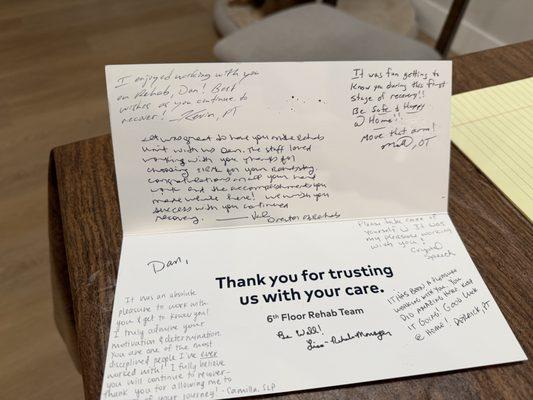 I enjoyed working with you
on Rehab, Dan! Best
wishes as you continue to
recover! Kevin, PT
It was fun getting to
know you during this first
stage of recovery!!
Be Safe & Happy
@ Home!!
Move that arm!
, OT
It was great to have you on the Rehab
Unit with us Dan. The staff loved
working with you. Thanks for
choosing for your Rehab stay.
Congratulations on all your hard
work and the accomplishments you
made while here! We wish you
success with your continued
recovery.
Director of Rehab
Please take care of
yourself It was
my pleasure working
with you!
Crystal
Speech
Dan,
It was an absolute
pleasure to work with
you & get to know you!
I truly admire your
motivation & determination.
You are one of the most
disciplined people I've ever
worked with! I fully believe
you will continue to recover-
thank you for allowing me to
of your journey! - Camilla, SLP
Thank you for trusting
us with your care.
6th Floor Rehab Team
Be Well!
Lisa - Rehab Manager
IT HAS BEEN A PLEASURE
WORKING WITH YOU. YOU
DID AMAZING HERE KEEP
IT GOING! GOOD LUCK
@ HOME! , PT